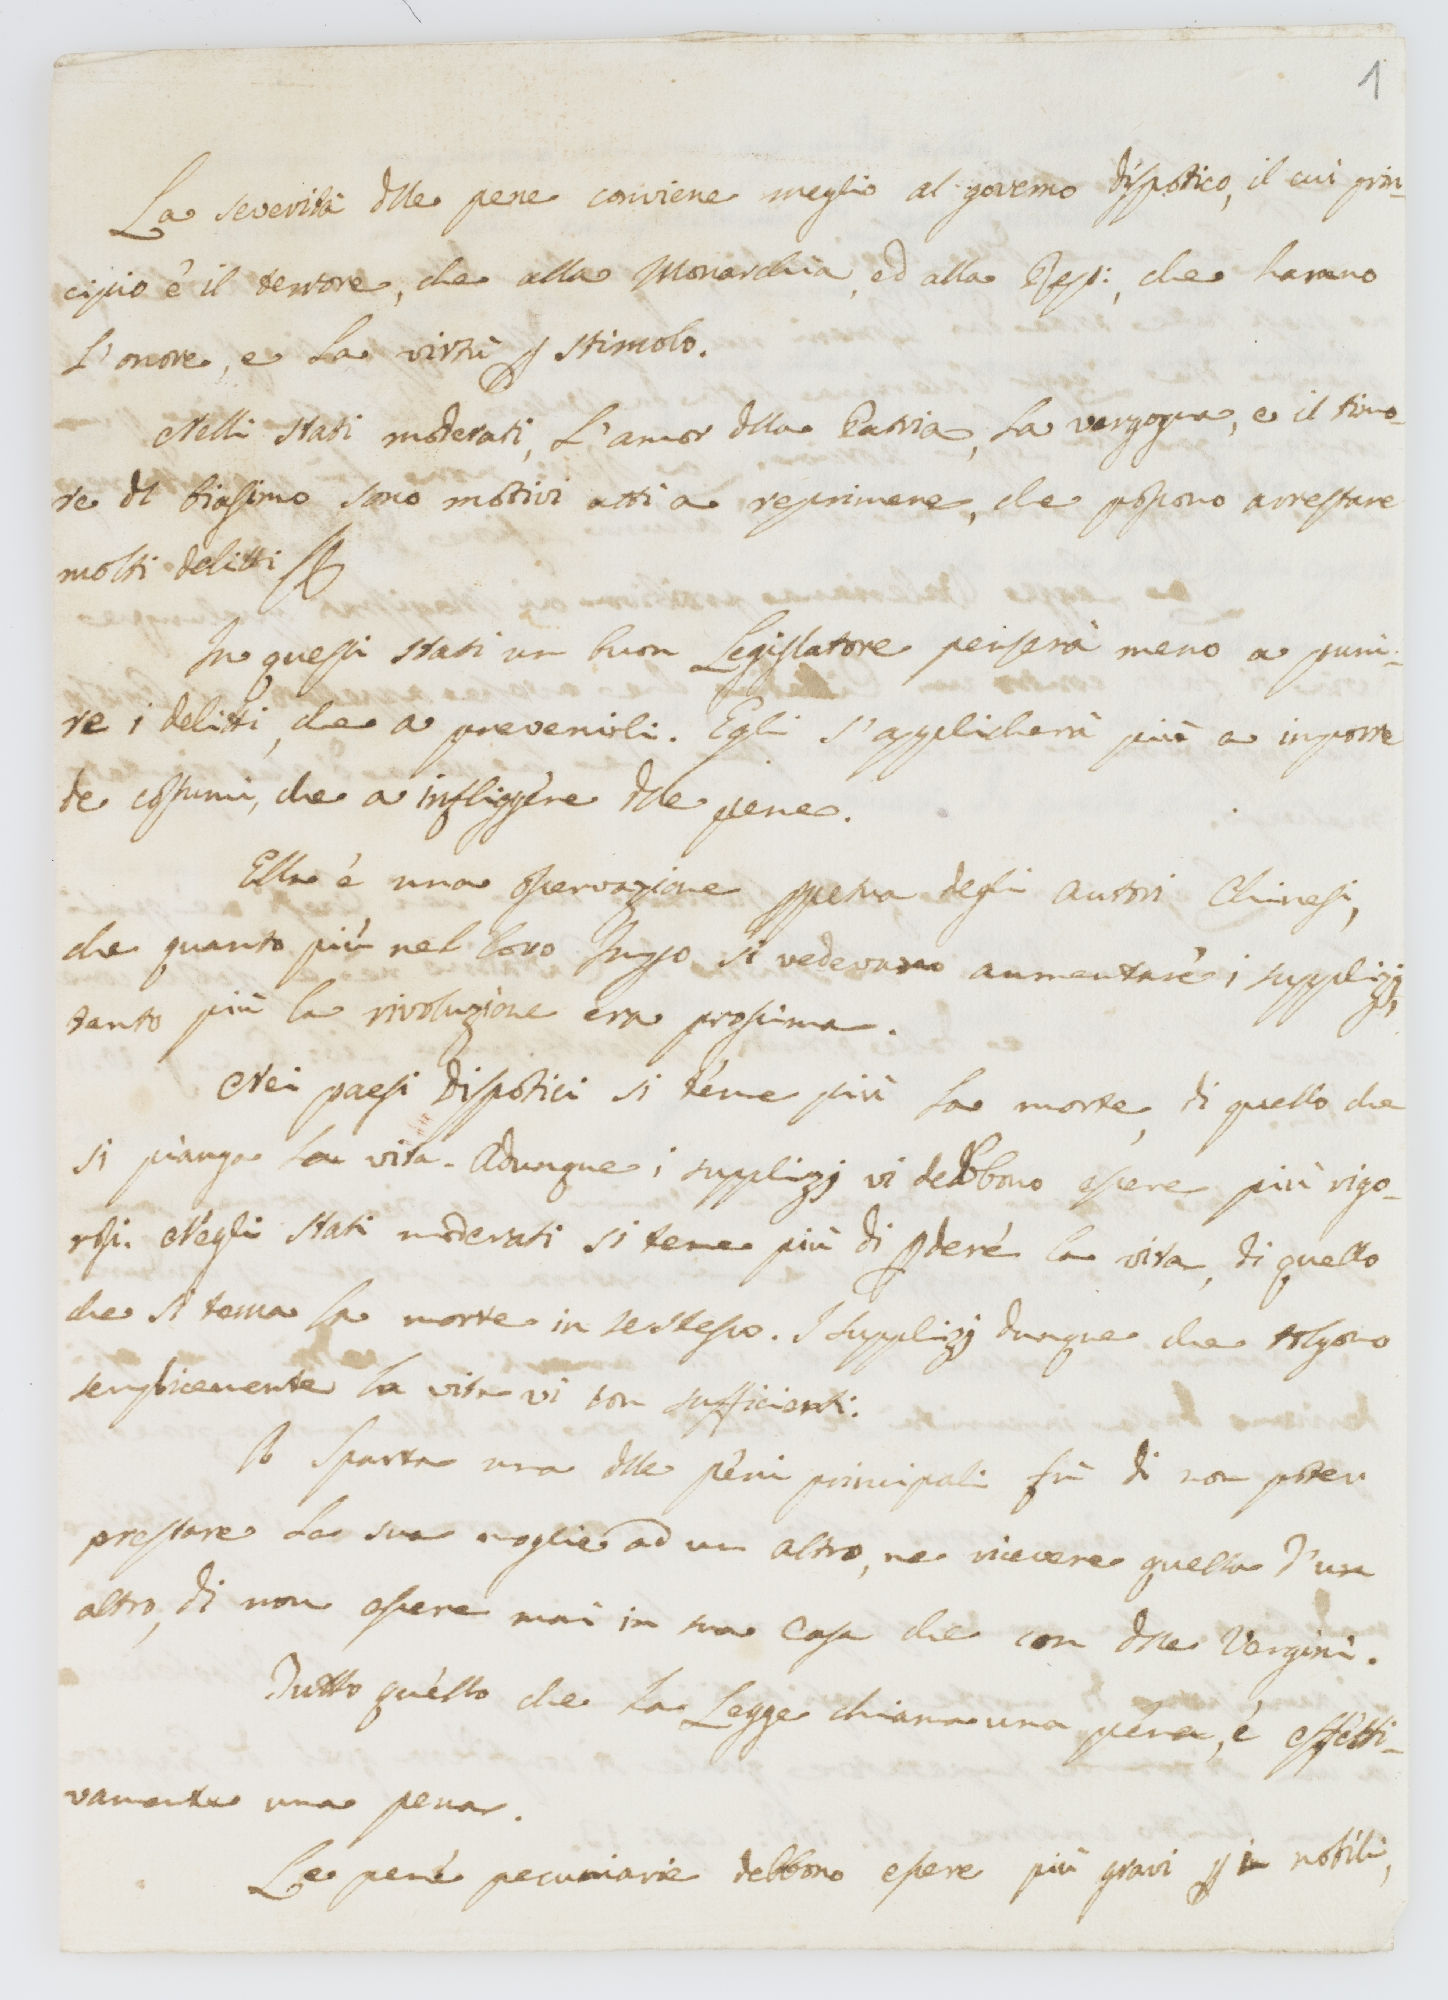 1
La severità dlle pene conviene meglio al governo dispotico, il cui prin-
cipio è il terrore, che alla Monarchia, ed alla Rep:, che hanno
L'onore, e La virtù p stimolo.
Nelli stati moderati, L'amor dlla Patria, La vergogna, e il timo-
re dl biasimo sono motivi atti a reprimere, che possono arrestare
molti delitti
In questi stati un buon Legislatore penserà meno a puni-
re i delitti, che a prevenirli. Egli s'applicherà più a inporre
de costumi, che a infliggere dlle pene.
Ella è una osservazione ppetua degli autori Chinesi,
che quanto più nel loro Impo si vedevano aumentare i supplizj,
tanto più la rivoluzione era prossima.
Nei paesi dispotici si teme più La morte, di quello che
si pianga La vita. Adunque i supplizj vi debbono essere più rigo-
rosi. Negli stati moderati si teme più di pdere la vita, di quello
che si tema la morte in sestesso. I supplizj dunque che tolgono
semplicemente la vita vi son sufficienti.
A Sparta una dlle peni principali fù di non poter
prestare La sua moglie ad un altro, ne ricevere quella d'un
altro, di non essere mai in sua Casa che con dlle Vergini.
Tutto quello che La Legge chiama una pena, è effetti-
vamente una pena.
Le pene pecuniarie debbono essere più gravi p i nobili,